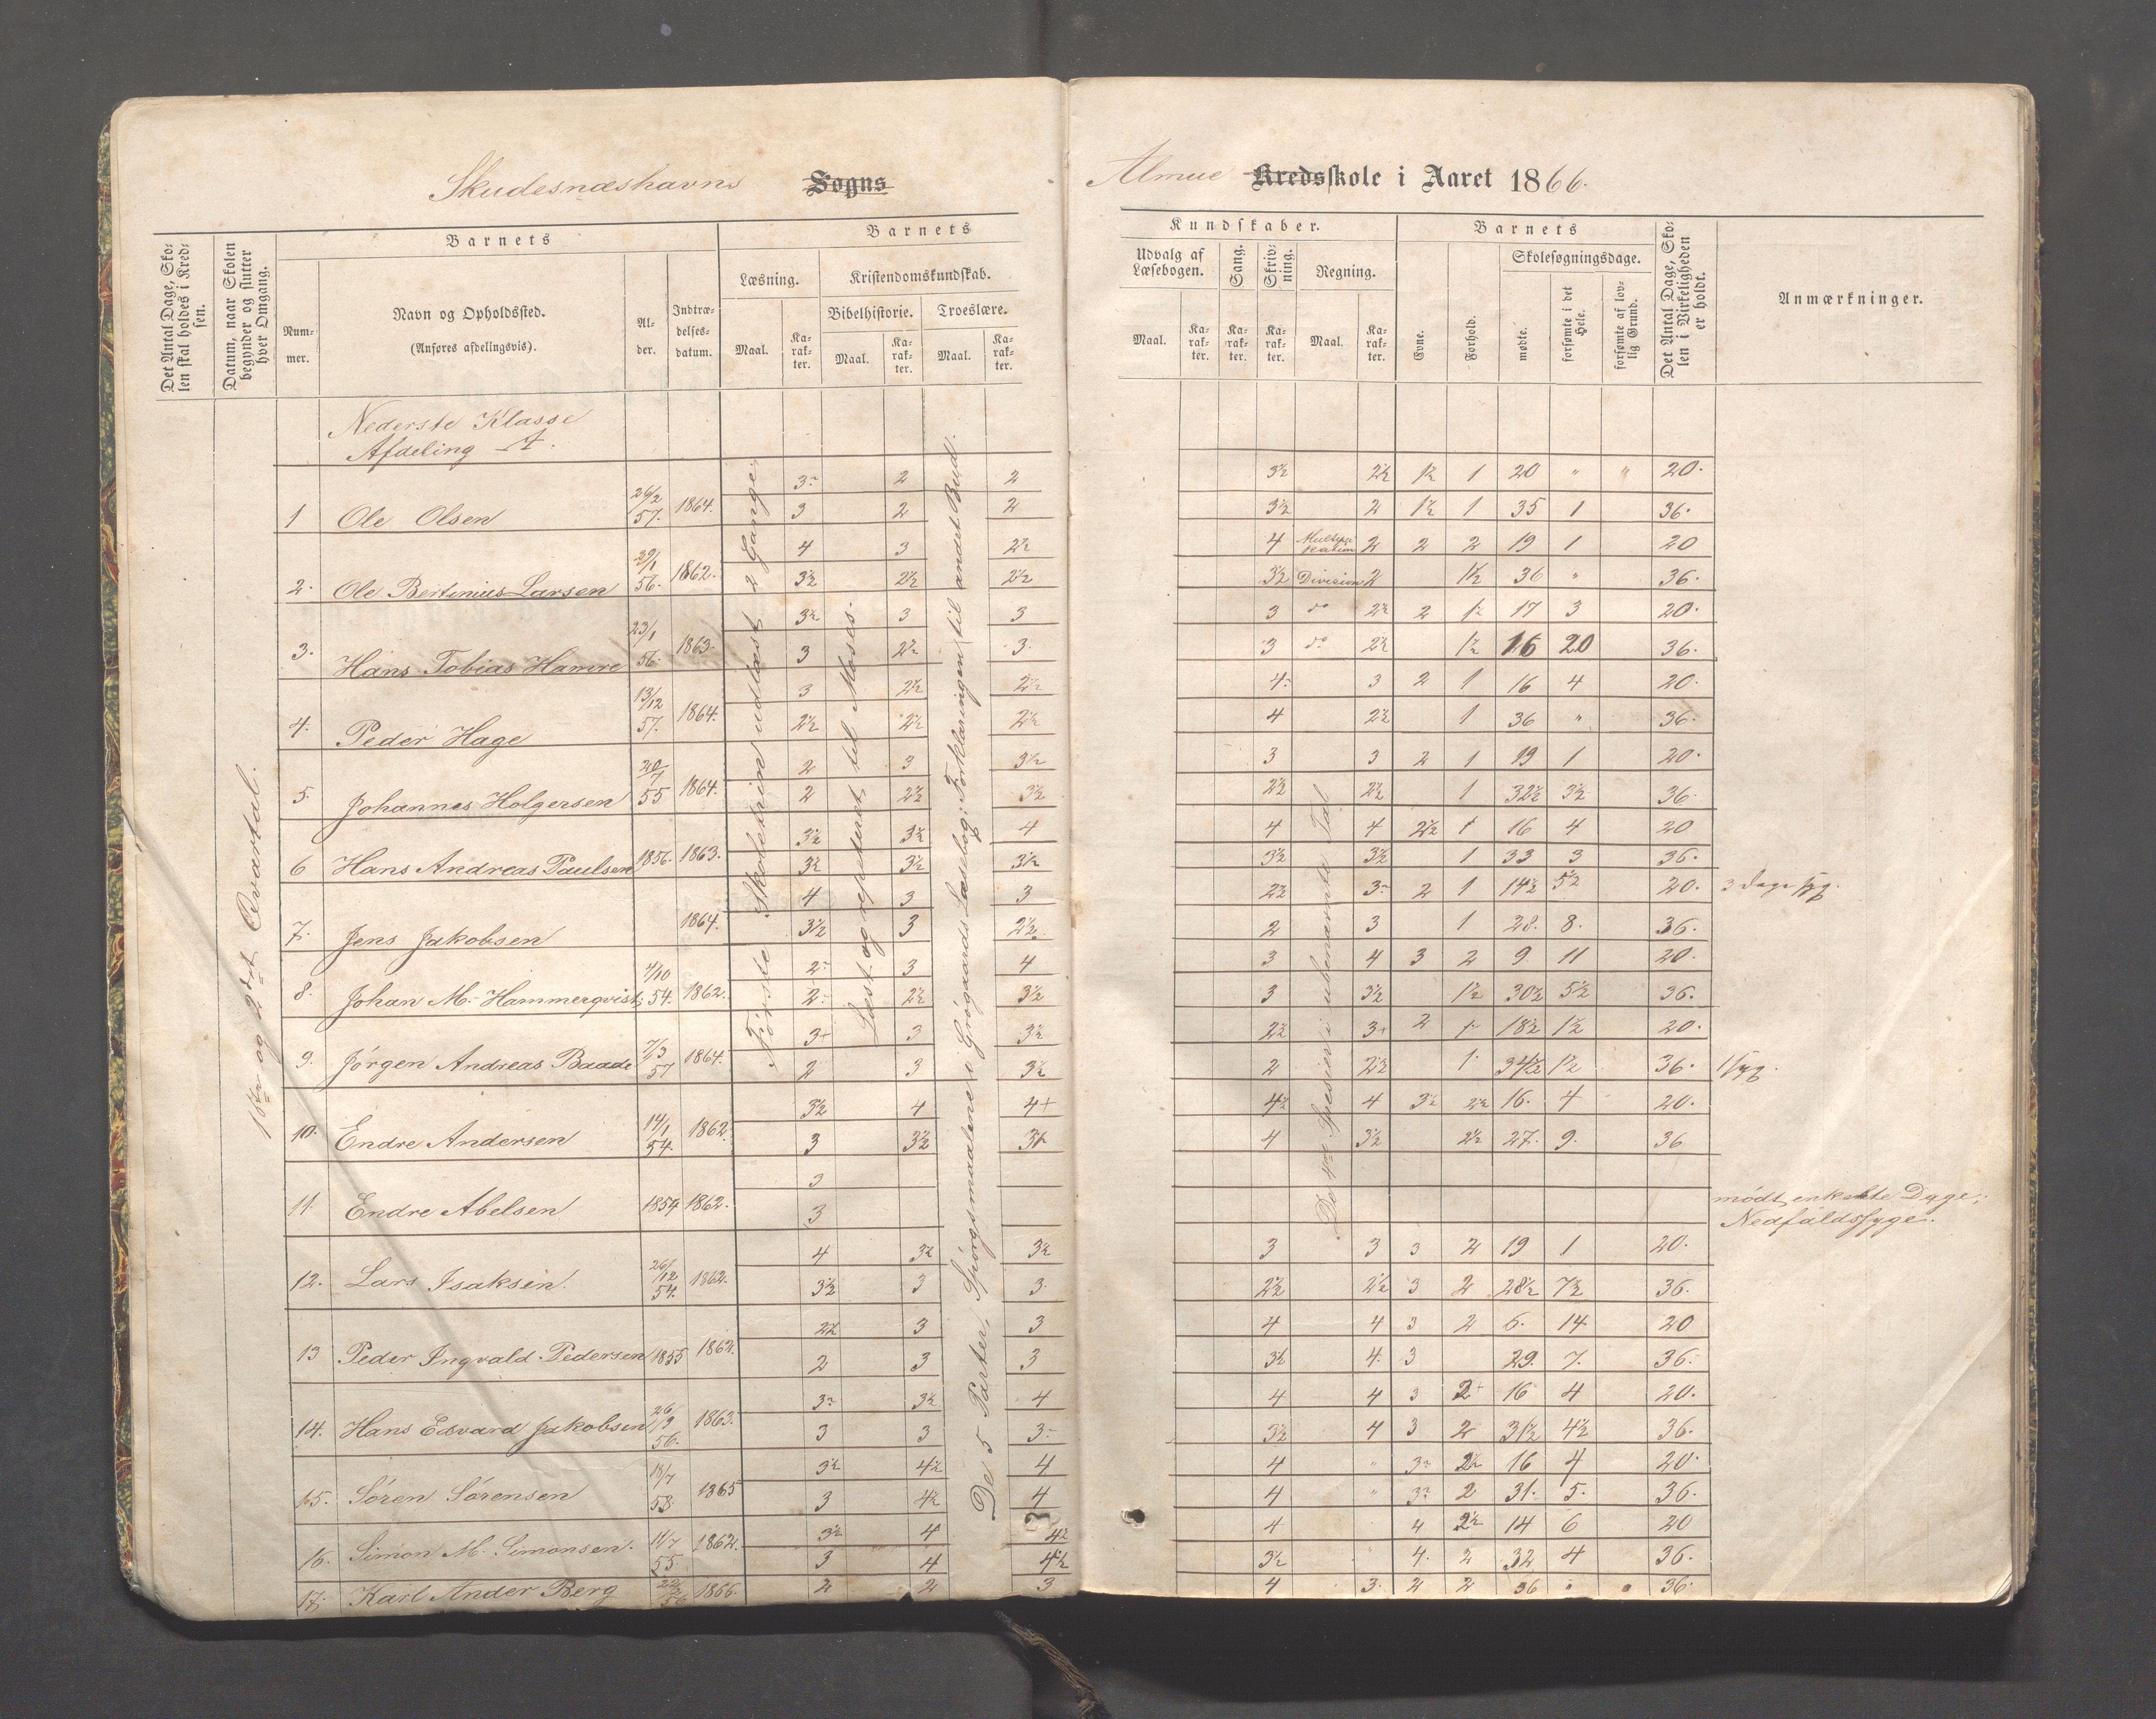 Skudesnæshavns Sogns Almue Kredsskole i Aaret 1866.
Det Antal Dage, Skolen skal holdes i Kredsen.
Datum, naar Skolen begynder og slutter hver Omgang.
Barnets
Nummer.
Navn og Opholdssted.
(Anføres afdelingsvis).
Alder.
Indtrædelsesdatum.
Barnets
Læsning.
Maal.
Karakter.
Kristendomskundskab.
Bibelhistorie.
Maal.
Karakter.
Troeslære.
Maal.
Karakter.
Kundskaber.
Udvalg af Læsebogen.
Maal.
Karakter.
Sang.
Karakter.
Skrivning.
Karakter.
Regning.
Maal.
Karakter.
Barnets
Evne.
Forhold.
Skolesøgningsdage.
mødte.
forsømte i det Hele.
forsømte af lovlig Grund.
Det Antal Dage, Skolen i Virkeligheden er holdt.
Anmærkninger.
1ste og 2det Qvartal.
Nederste Klasse
Afdeling A.
Første Skoletrin udlæst 2 Gange.
Læst og repeteret til Moses.
De 5 Parter, Spørgsmaalene i Grøgaards Læsebog; Forklaringen til andet Bud.
De 4re Spesier i ubenævnte Tal
1 Ole Olsen 26/2 57. 1864.
3- 2 2 3½ 2½ 1½ 1 20 " " 20.
3 2 2 3½ 2 1½ 1 35 1 36.
2. Ole Bertinius Larsen 29/1 56. 1862.
4 3 2½ 4 Multiplikation 2 2 2 19 1 20
3½ 2½ 2½ 3½ Division 2 1½ 36 " 36.
3. Hans Tobias Hamre 23/1 56. 1863.
3½ 3 3 3 do 2½ 2 1½ 17 3 20.
3 2½ 3 3 do 2½ 1½ 16 20 36.
4. Peder Hage 13/12 57. 1864.
3 2½ 2½ 4- 3 2 1 16 4 20.
2½ 2½ 2½ 4 2½ 1 36 " 36.
5. Johannes Holgersen 20/7 55 1864.
2 3 3½ 3 3 2 1 19 1 20.
2 2½ 3½ 2½ 2½ 1 32½ 3½ 36.
6 Hans Andreas Paulsen 1856. 1863.
3½ 3½ 4 4 4 2½ 1 16 4 20
3½ 3½ 3½ 3½ 3½ 1 33 3 36.
7. Jens Jakobsen 1864.
4 3 3 2½ 3- 2 1 14½ 5½ 20. 3 Dage syg.
3½ 3 2½ 2 3 1 28. 8. 36.
8. Johan M. Hammerqvist 4/10 54. 1862.
2- 3 4 3 4 3 2 9 11 20.
2- 2½ 3½ 3 3½ 1½ 30½ 5½ 36.
9. Jørgen Andreas Baade 7/3 57 1864.
3+ 3 3½ 2½ 3+ 2 1- 18½ 1½ 20.
2 3 3½ 2 2½ 1. 34½ 1½ 36. 1 syg.
10. Endre Andersen 14/1 54. 1862.
3½ 4 4+ 4½ 4 3½ 2½ 16. 4 20.
3 3½ 3½ 4 3½ 2½ 27. 9. 36
11. Endre Abelsen 1854 1862.
3
3
mødt enkelte Dage;
Nedfaldssyge.
12. Lars Isaksen. 26/12 54. 1862.
4 3½ 3½ 3 3 3 2 19 1 20.
3½ 3 3. 2½ 2½ 3 2 28½ 7½ 36.
13 Peder Ingvald Pedersen 1855 1862.
2½ 3 3 4 4 3 2 6. 14 20
2 3 3 3½ 4. 3 29. 7. 36.
14. Hans Edvard Jakobsen 26/9 56. 1863.
3- 3½ 4 4 4 3 2+ 16 4 20.
3 3 3- 3½ 4 3 2 31½ 4½ 36.
15. Søren Sørensen 18/7 58. 1865
3½ 4½ 4 4 " 3- 2½ 16 4 20.
3 4½ 4 4 " 3- 2 31. 5. 36.
16. Simon M. Simonsen. 11/7 55. 1862.
3½ 4 4½ 4 4 2½ 14 6 20
3 4 4½ 3½ " 4. 2 32 4 36.
17. Karl Ander Berg 22/2 56 1866.
2 2 3 4 3. 2 2 36 " " 36.